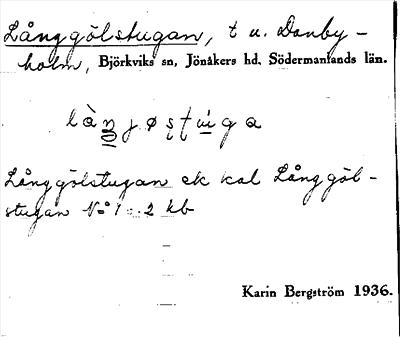 Långgölstugan, t u. Danby-
holm, Björkviks sn, Jönåkers hd, Södermanlands län.
Långgölstugan ek kal Långgöl-
stugan No 1 : 2 kb
Karin Bergström 1936.